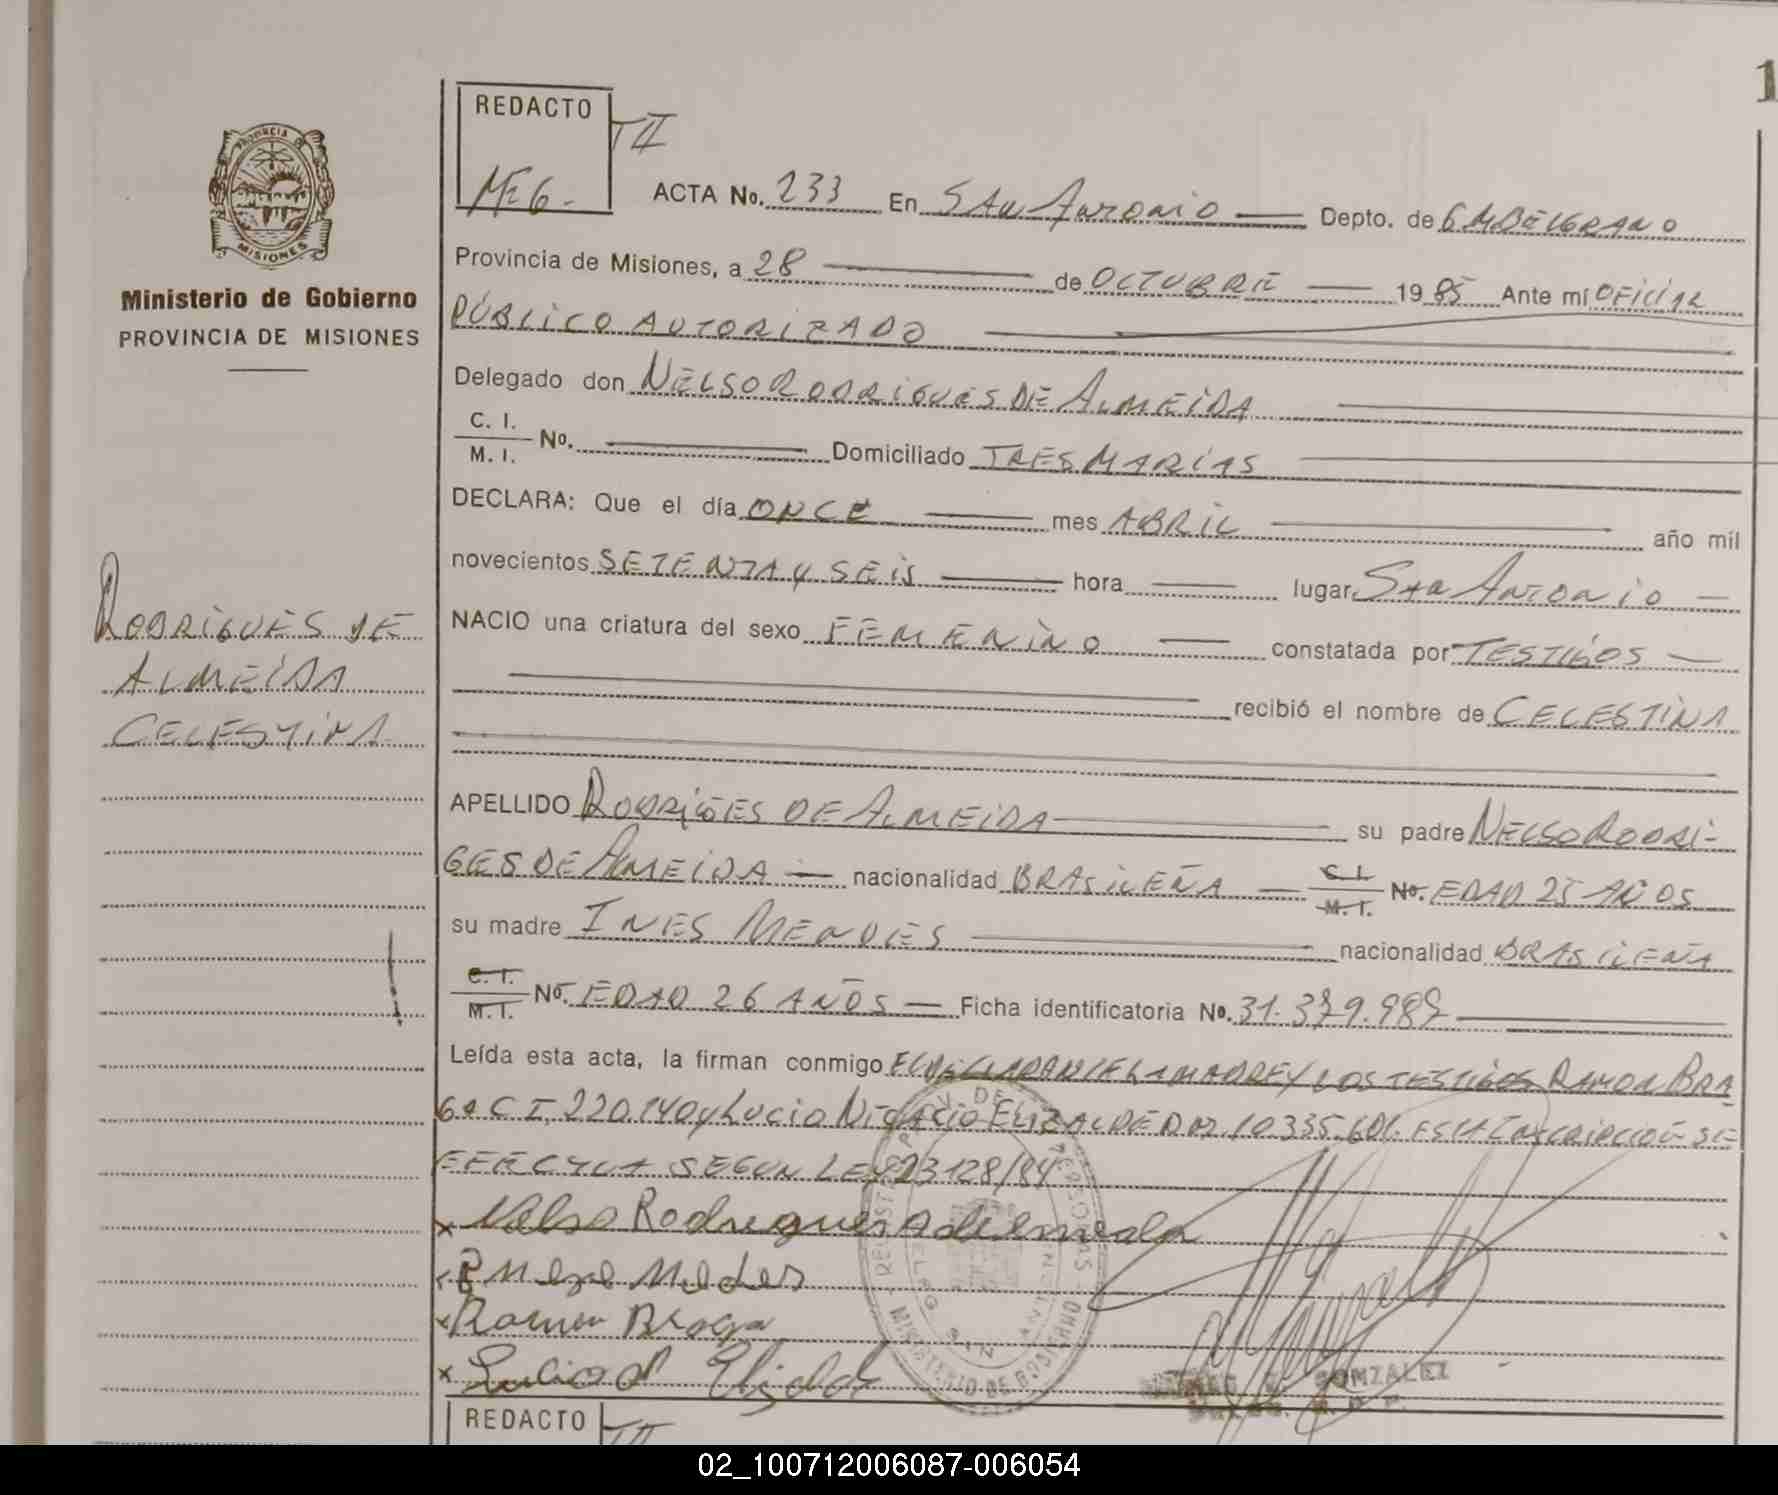 1
REDACTO
TII
PROVINCIA DE
MISIONES
ACTA No. 233 En San Antonio Depto. de G M. BELGRANO
Ministerio de Gobierno
PROVINCIA DE MISIONES
Provincia de Misiones, a 28 de OCTUBRE 1985 Ante mí OFICIAL
PÚBLICO AUTORIZADO
Delegado don NELSO RODRIGUES DE ALMEIDA
C. I.
M. I. No. Domiciliado TRES MARIAS
DECLARA: Que el día ONCE mes ABRIL año mil
novecientos SETENTA y SEIS hora lugar San Antonio
RODRIGUES DE
ALMEIDA
CELESTINA
NACIO una criatura del sexo FEMENINO constatada por TESTIGOS
recibió el nombre de CELESTINA
APELLIDO RODRIGES DE ALMEIDA su padre NELSO RODRI-
GES DE ALMEIDA nacionalidad BRASILEÑA C. I. M. I. No. EDAD 25 AÑOS
su madre INES MENDES nacionalidad BRASILEÑA
C. I.
M. I. No. EDAD 26 AÑOS Ficha identificatoria No. 31.379.989
Leída esta acta, la firman conmigo EL DECLARANTE LA MADRE Y LOS TESTIGOS RAMON BRA
GA C I. 220.140 y LUCIO ELIZALDE 10.335.601. ESTA INSCRIPCION SE
EFECTUA SEGUN LEY 23128/84
x Nelso Rodrigues
x
x Ramon Braga
x Lucio
REGISTRO PROV. DE LAS PERSONAS
MINISTERIO DE GOBIERNO
GONZALEZ
REDACTO
TII
02_100712006087-006054